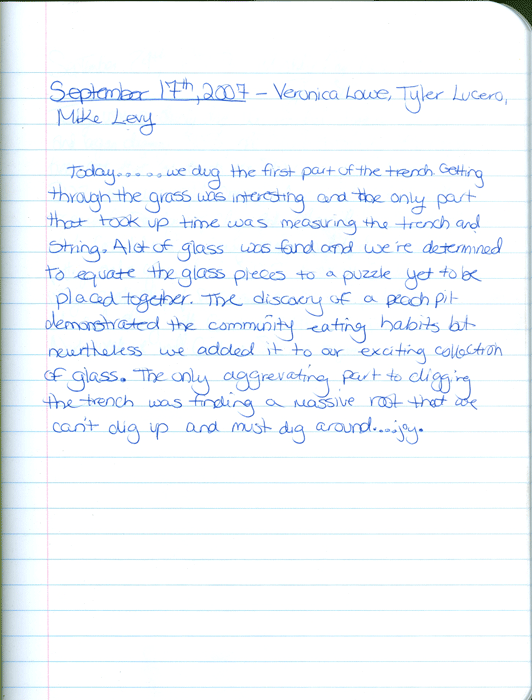 September 17th, 2007 – Veronica Lowe, Tyler Lucero,
Mike Levy
Today......we dug the first part of the trench. Getting
through the grass was interesting and the only part
that took up time was measuring the trench and
string. A lot of glass was fand and we're determined
to equate the glass pieces to a puzzle yet to be
placed together. The discovery of a peach pit
demonstrated the community eating habits but
nevertheless we added it to our exciting collection
of glass. The only aggrevating part to digging
the trench was finding a massive root that we
can't dig up and must dig around....joy.